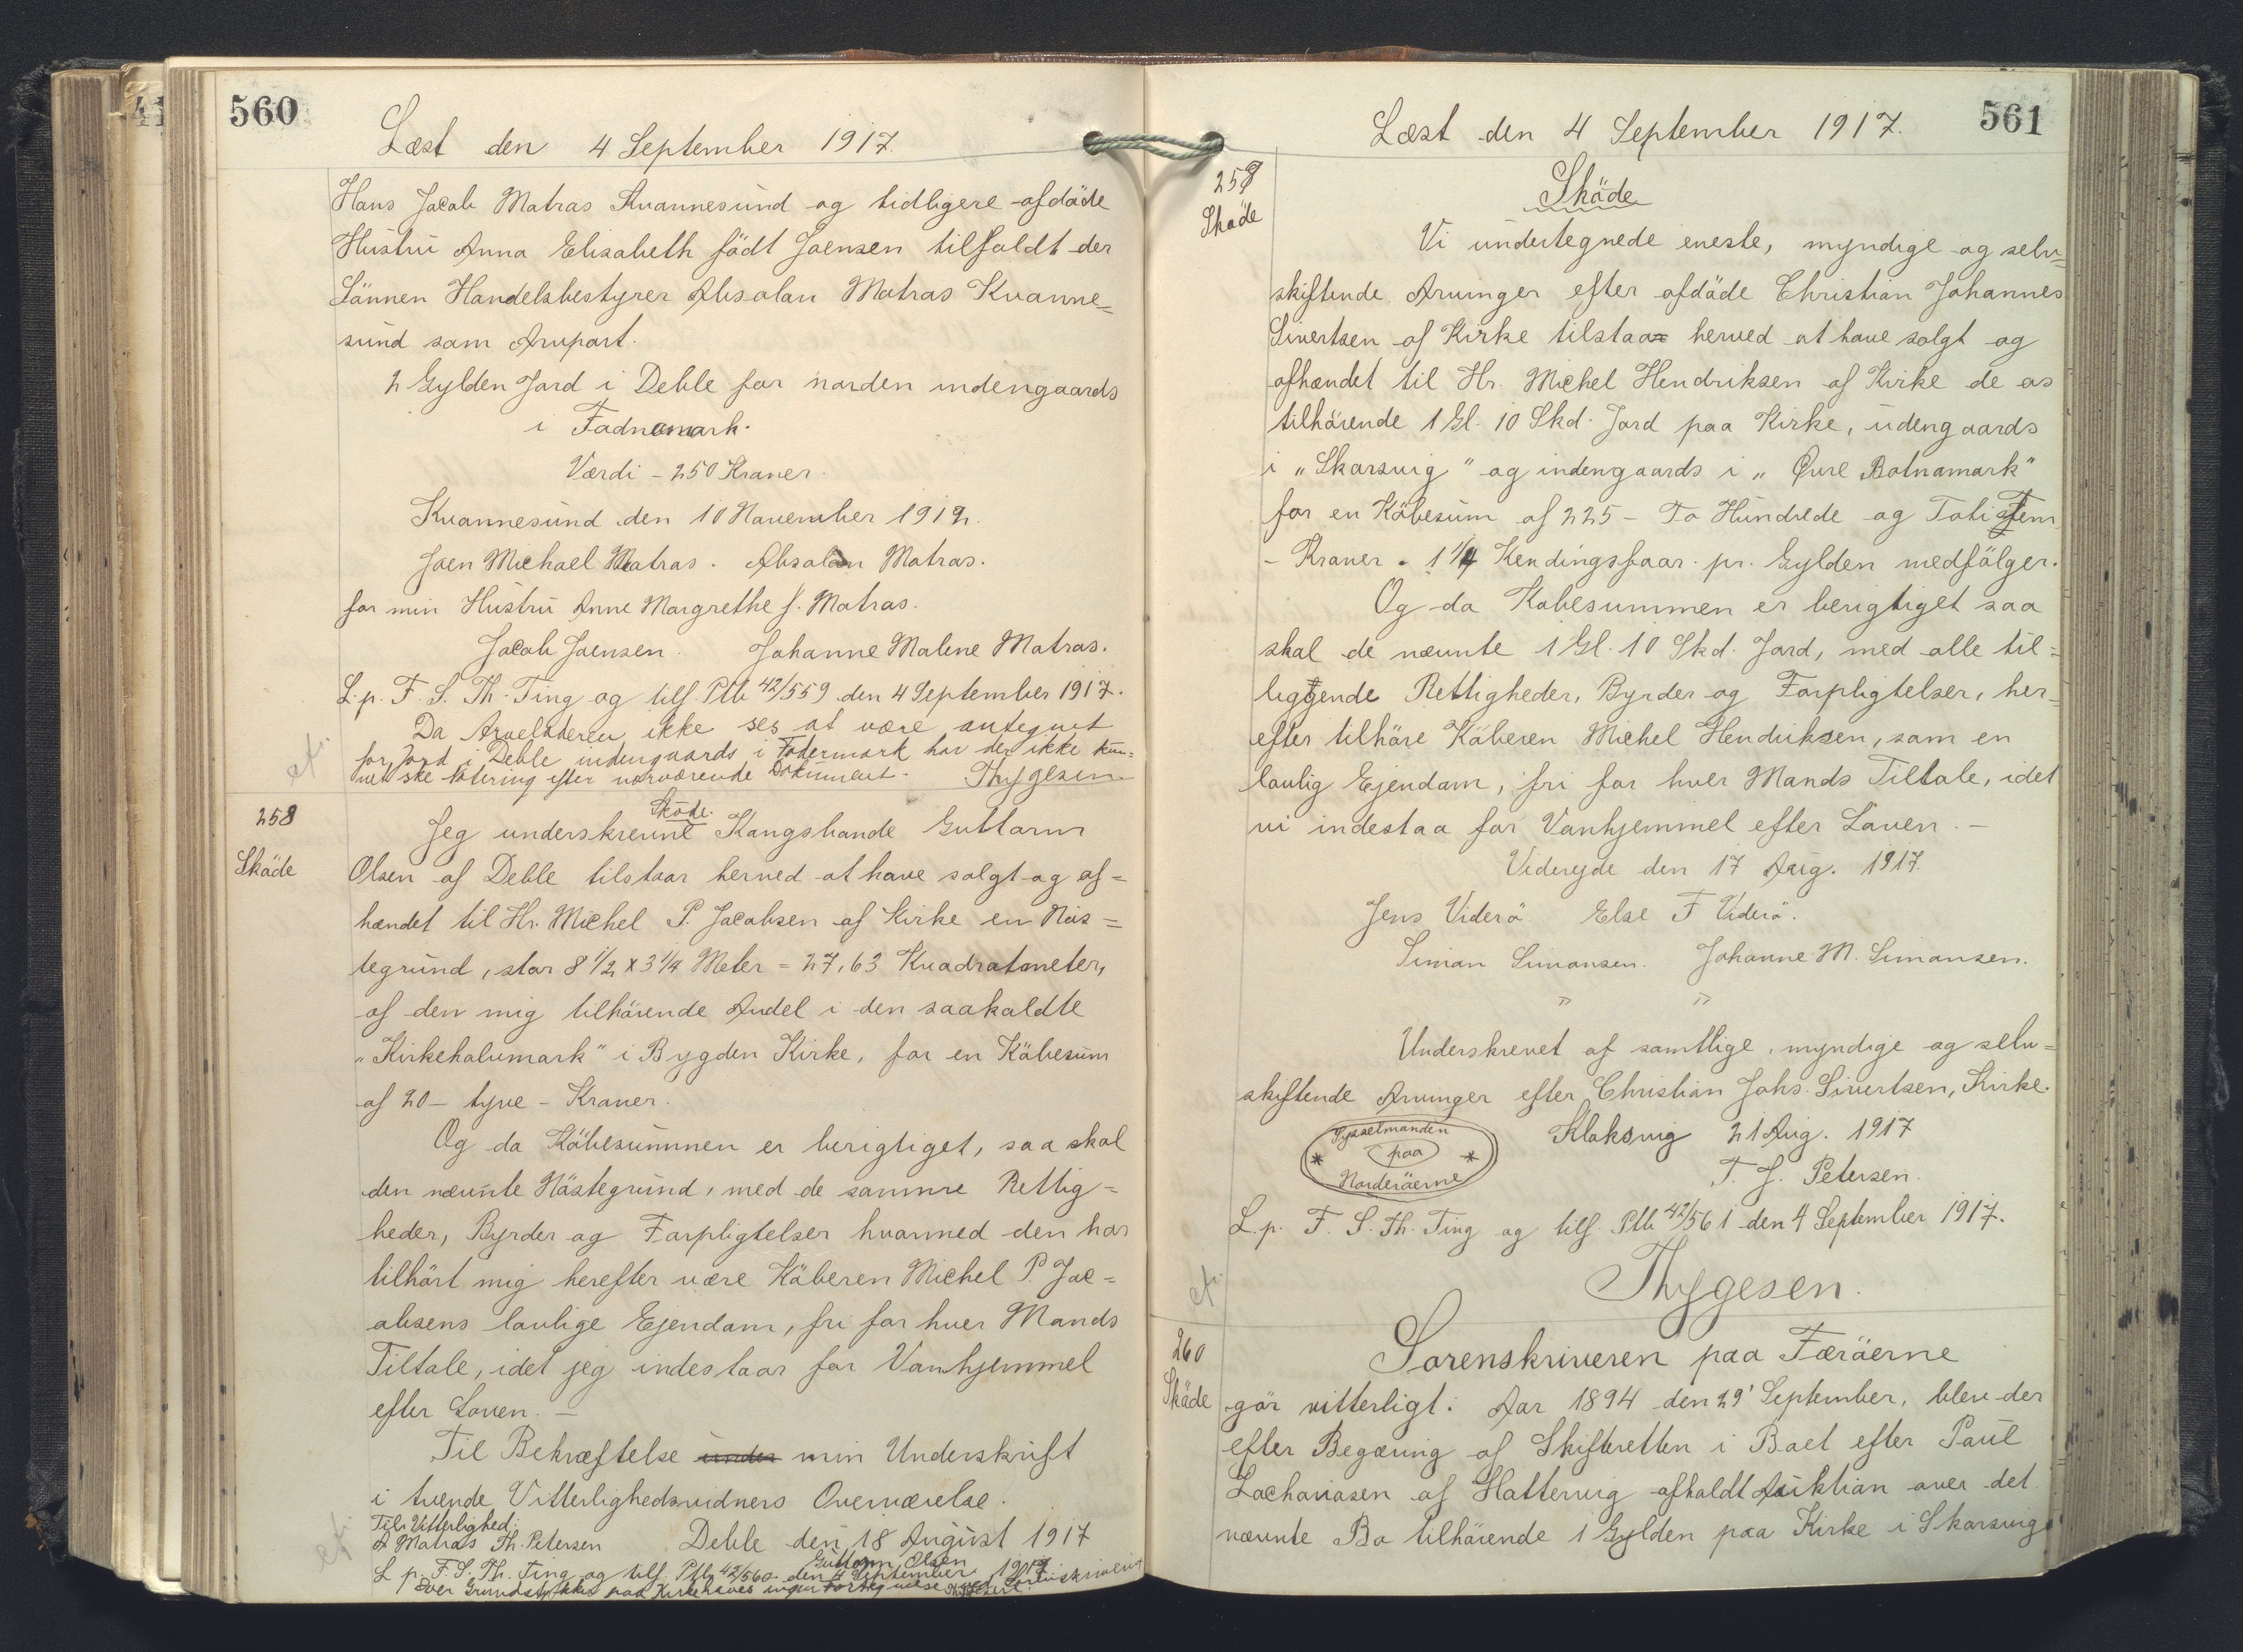 560
Læst den 4 September 1917.
Hans Jacob Matras Kvannesund og tidligere afdöde
Hustru Anna Elisabeth födt Joensen tilfaldt der
Sönnen Handelsbestyrer Absolon Matras Kvanne=
sund som Arvpart.
2 Gylden Jord i Deble for norden indengaards
i Fadnamark.
Værdi - 250 Kroner.
Kvannesund den 10 November 1912.
Joen Michael Matras. Absalon Matras.
for min Hustru Anne Margrethe f. Matras.
Jacob Joensen. Johanne Malene Matras.
L. p. F. S. Th. Ting og tilf. Ptb 42/559 den 4 September 1917.
Da Arveladeren ikke ses at være antegnet
for Jord i Deble indengaards i Fodermark har der ikke kun=
net ske Notering efter nærværende Dokument. Thygesen
258
Sköde
Sköde.
Jeg underskrevne Kongsbonde Guttorm
Olsen af Deble tilstaar herved at have solgt og af=
hændet til Hr. Michel P. Jacobsen af Kirke en Nös=
tegrund, stor 8 1/2 x 3 1/4 Meter = 27,63 Kvadratmeter,
af den mig tilhörende Andel i den saakaldte
"Kirkehalvmark" i Bygden Kirke, for en Köbesum
af 20 - tyve - Kroner.
Og da Köbesummen er berigtiget, saa skal
den nævnte Nöstegrund, med de samme Rettig=
heder, Byrder og Forpligtelser hvormed den har
tilhört mig herefter være Köberen Michel P. Jac=
obsens lovlige Ejendom, fri for hver Mands
Tiltale, idet jeg indestaar for Vanhjemmel
efter Loven. -
Til Bekræftelse under min Underskrift
i tvende Vitterlighedsvidners Overværelse.
Til Vitterlighed:
A Matras Th. Petersen Deble den 18 August 1917
Guttorm Olsen
L p. F. S. Th. Ting og tilf. Ptb 42/560 den 4 September 1917
Over Grundstykker paa Kirke haves ingen Fortegnelse
561
Læst den 4 September 1917.
259
Sköde
Sköde
Vi undertegnede eneste, myndige og selv=
skiftende Arvinger efter afdöde Christian Johannes
Sivertsen af Kirke tilstaa herved at have solgt og
afhændet til Hr. Michel Hendriksen af Kirke de os
tilhörende 1 Gl. 10 Skd. Jord paa Kirke, udengaards
i "Skarsvig" og indengaards i "Övre Botnamark"
for en Köbesum af 225 - To Hundrede og Toti Fem
- Kroner. 1 1/4 Kendingsfaar pr. Gylden medfölger.
Og da Kobesummen er berigtiget saa
skal de nævnte 1 Gl. 10 Skd. Jord, med alle til=
liggende Rettigheder, Byrder og Forpligtelser, her=
efter tilhöre Köberen Michel Hendriksen, som en
lovlig Ejendom, fri for hver Mands Tiltale, idet
vi indestaa for Vanhjemmel efter Loven. -
Videreyde den 17 Aug. 1917.
Jens Viderö Else F Viderö.
Simon Simonsen. Johanne M. Simonsen.
" "
Underskrevet af samtlige, myndige og selv=
skiftende Arvinger efter Christian Johs. Sivertsen, Kirke.
Sysselmanden
paa
Norderöerne
Klaksvig 21 Aug. 1917
T. J. Petersen.
L. p. F. S. Th. Ting og tilf. Ptb 42/561 den 4 September 1917.
Thygesen.
260
Sköde
Sorenskriveren paa Færöerne
gör vitterligt: Aar 1894 den 29' September, blev der
efter Begæring af Skifteretten i Boet efter Paul
Zachariasen af Hattervig afholdt Auktion over det
nævnte Bo tilhörende 1 Gylden paa Kirke i Skarsvig